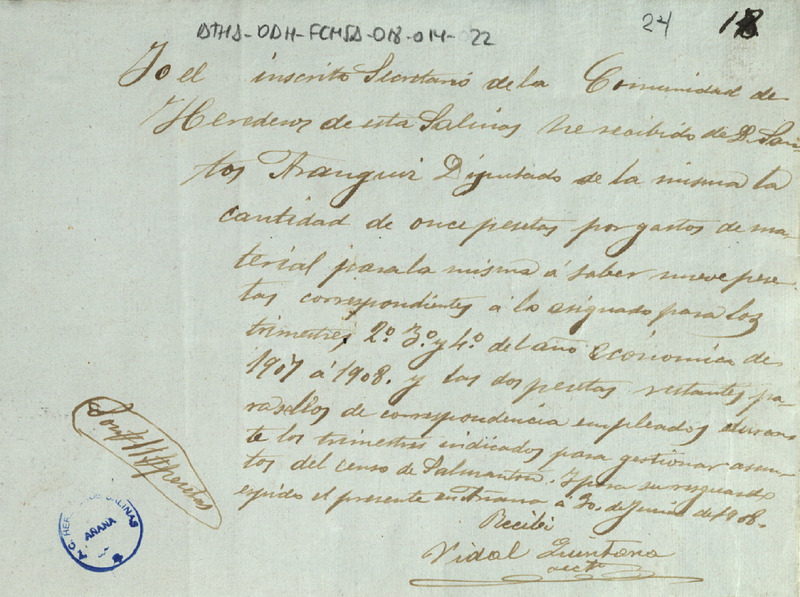 ATHA-ODH-FCHSA-018-014-22
24 18
Yo el inscrito Secretario de la Comunidad de
Herederos de esta Salinas he recibido de D. San
tos Aranguiz Diputado de la misma la
cantidad de once pesetas por gastos de ma-
terial para la misma á saber nueve pese-
tas correspondientes á lo asignado para los
trimestres, 2º. 3º. y 4º. del año económica de
1907 á 1908. y las dos pesetas restantes pa-
ra sellos de correspondencia empleados duran
te los trimestres indicados para gestionar asun-
tos del censo de Salmantón. Y para su resguardo
espido el presente en Añana á 30. de Junio de 1908.
Recibi
Vidal Quintana
Secto
Son 11 pesetas
A.C. HEREDEROS SALINAS
AÑANA